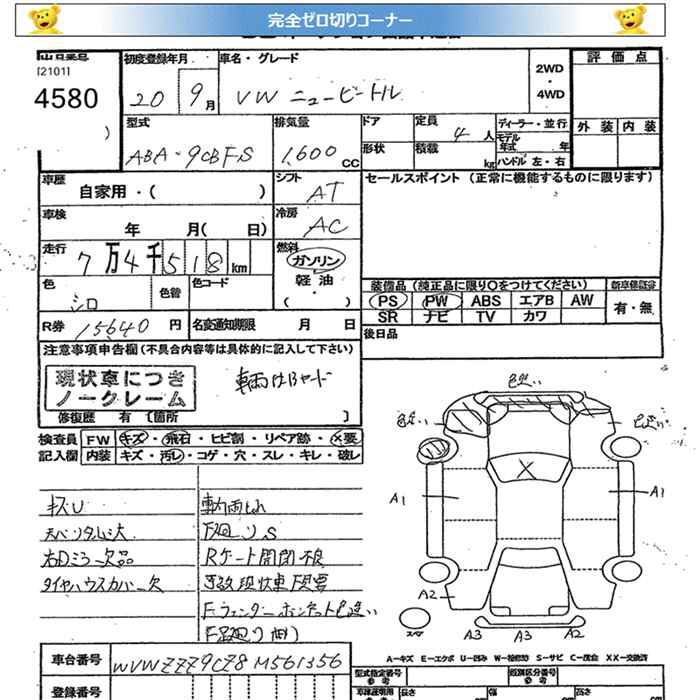 完全ゼロ切りコーナー
[2101]
4580
初度登録年月
車名・グレード
2WD
・
4WD
評価点
20 9月
VW ニュービートル
外装 内装
型式
排気量
ドア
定員
4人
ディーラー・並行
モデル年式 年
ABA-9CBFS
1,600 CC
形状
積載
kg
ハンドル 左・右
車歴
自家用・( )
シフト
AT
セールスポイント (正常に機能するものに限ります)
車検
年 月( 日)
冷房
AC
走行
7万4千518km
燃料
ガソリン
軽油
・( )
色
シロ
色替
色コード
装備品 (純正品に限り〇をつけてください)
新車保証書
PS PW ABS エアB AW
有・無
SR ナビ TV カワ
R券 15640 円
名変通知期限 月 日
後日品
注意事項申告欄 (不具合内容等は具体的に記入して下さい)
現状車につき
ノークレーム
車両はBヤード
修復歴 有 〔箇所 〕
検査員
記入欄
FW キズ・飛石・ヒビ割・リペア跡・X要
内装 キズ・汚レ・コゲ・穴・スレ・キレ・破レ
キズU
天バリタルミ大
右Dミラー欠品
タイヤハウスカバー欠
下廻りS
Rゲート開閉不良
F.フェンダーボンネット色違い
色違い
色違い
色違い
X
A1
A1
A2
A3
A3
A2
スペア
車台番号
WVWZZZ9CZ8M561356
A－キズ E－エクボ U－凹み W－補修跡 S－サビ C－腐食 XX－交換済
登録番号
型式指定番号
参考
類別区分番号
参考
長さ
幅
高さ